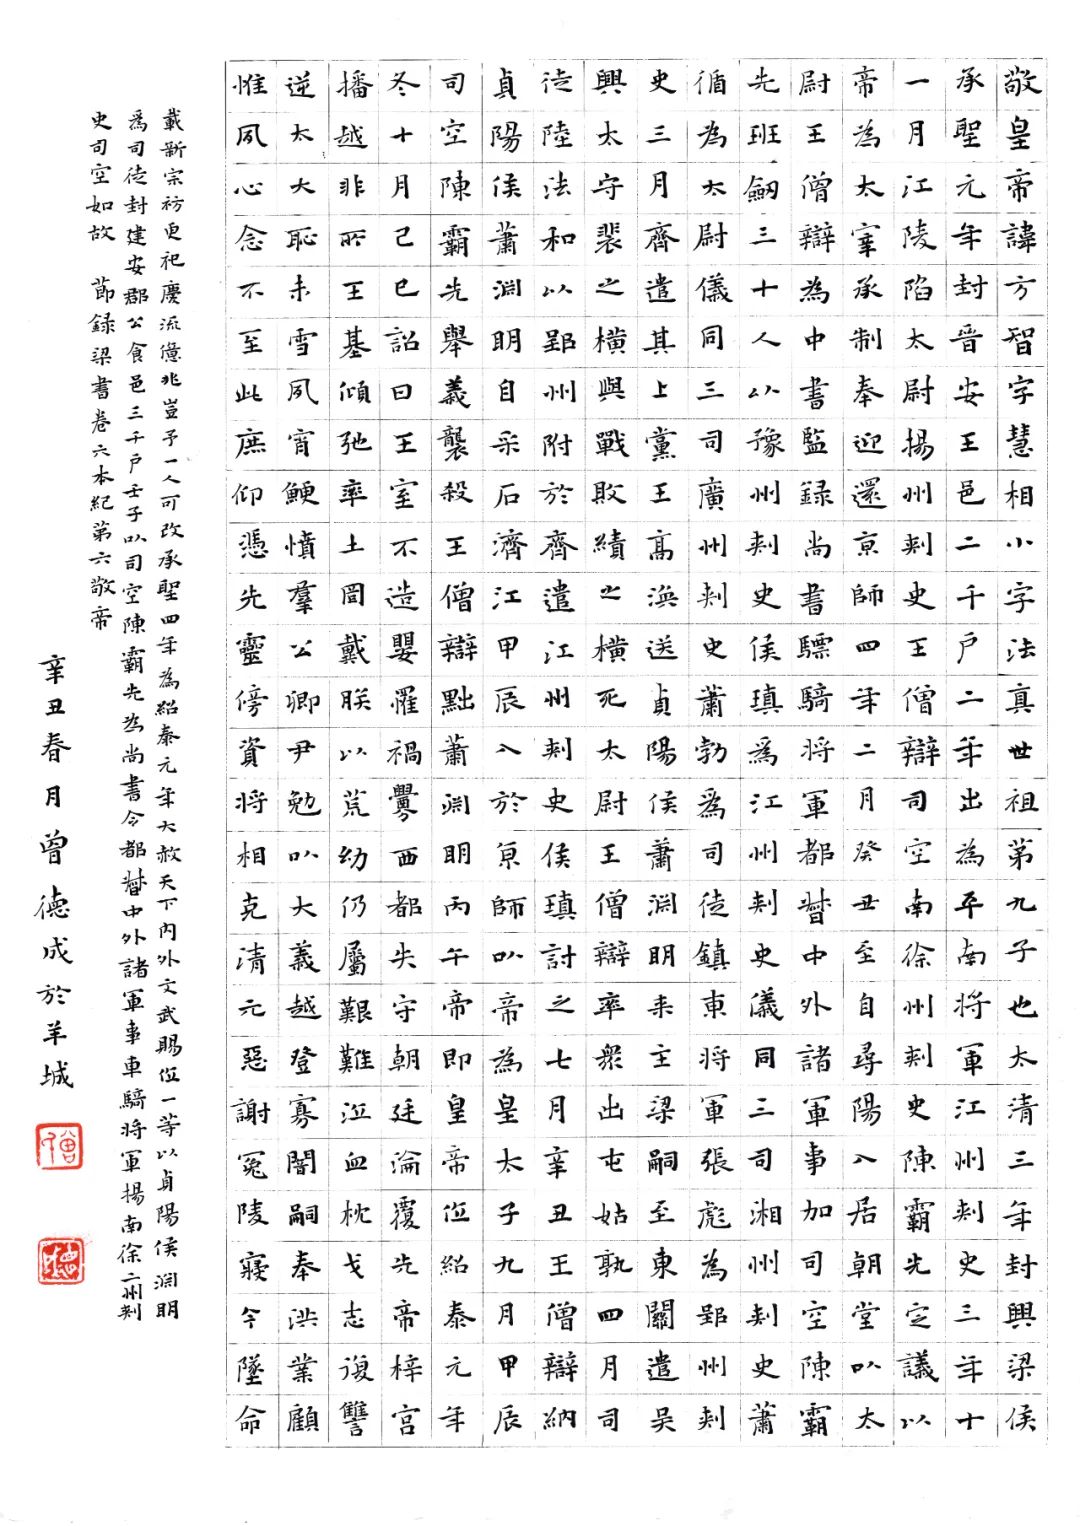 敬皇帝諱方智字慧相小字法真世祖第九子也太清三年封興梁侯
承聖元年封晉安王邑二千戶二年出為平南將軍江州刺史三年十
一月江陵陷太尉揚州刺史王僧辯司空南徐州刺史陳霸先定議以
帝為太宰承制奉迎還京師四年二月癸丑至自尋陽入居朝堂以太
尉王僧辯為中書監録尚書驃騎將軍都督中外諸軍事加司空陳霸
先班劒三十人以豫州刺史侯瑱為江州刺史儀同三司湘州刺史蕭
循為太尉儀同三司廣州刺史蕭勃為司徒鎮東將軍張彪為郢州刺
史三月齊遣其上黨王高渙送貞陽侯蕭淵明来主梁嗣至東關遣吳
興太守裴之橫與戰敗績之橫死太尉王僧辯率衆出屯姑孰四月司
徒陸法和以郢州附於齊遣江州刺史侯瑱討之七月辛丑王僧辯納
貞陽侯蕭淵明自采石濟江甲辰入於京師以帝為皇太子九月甲辰
司空陳霸先舉義襲殺王僧辯黜蕭淵明丙午帝即皇帝位紹泰元年
冬十月己巳詔曰王室不造嬰罹禍釁西都失守朝廷淪覆先帝梓宮
播越非所王基傾弛率土罔戴朕以荒幼仍屬艱難泣血枕戈志復讐
逆太大恥未雪夙宵鯁憤羣公卿尹勉以大義越登寡闇嗣奉洪業顧
惟夙心念不至此庶仰憑先靈傍資將相克清元惡謝冤陵寢今墜命
載新宗祊更祀慶流億兆豈予一人可改承聖四年為紹泰元年大赦天下內外文武賜位一等以貞陽侯淵明
為司徒封建安郡公食邑三千戶壬子以司空陳霸先為尚書令都督中外諸軍事車騎將軍揚南徐二州刺
史司空如故 節録梁書卷六本紀第六敬帝
辛丑春月曾德成於羊城